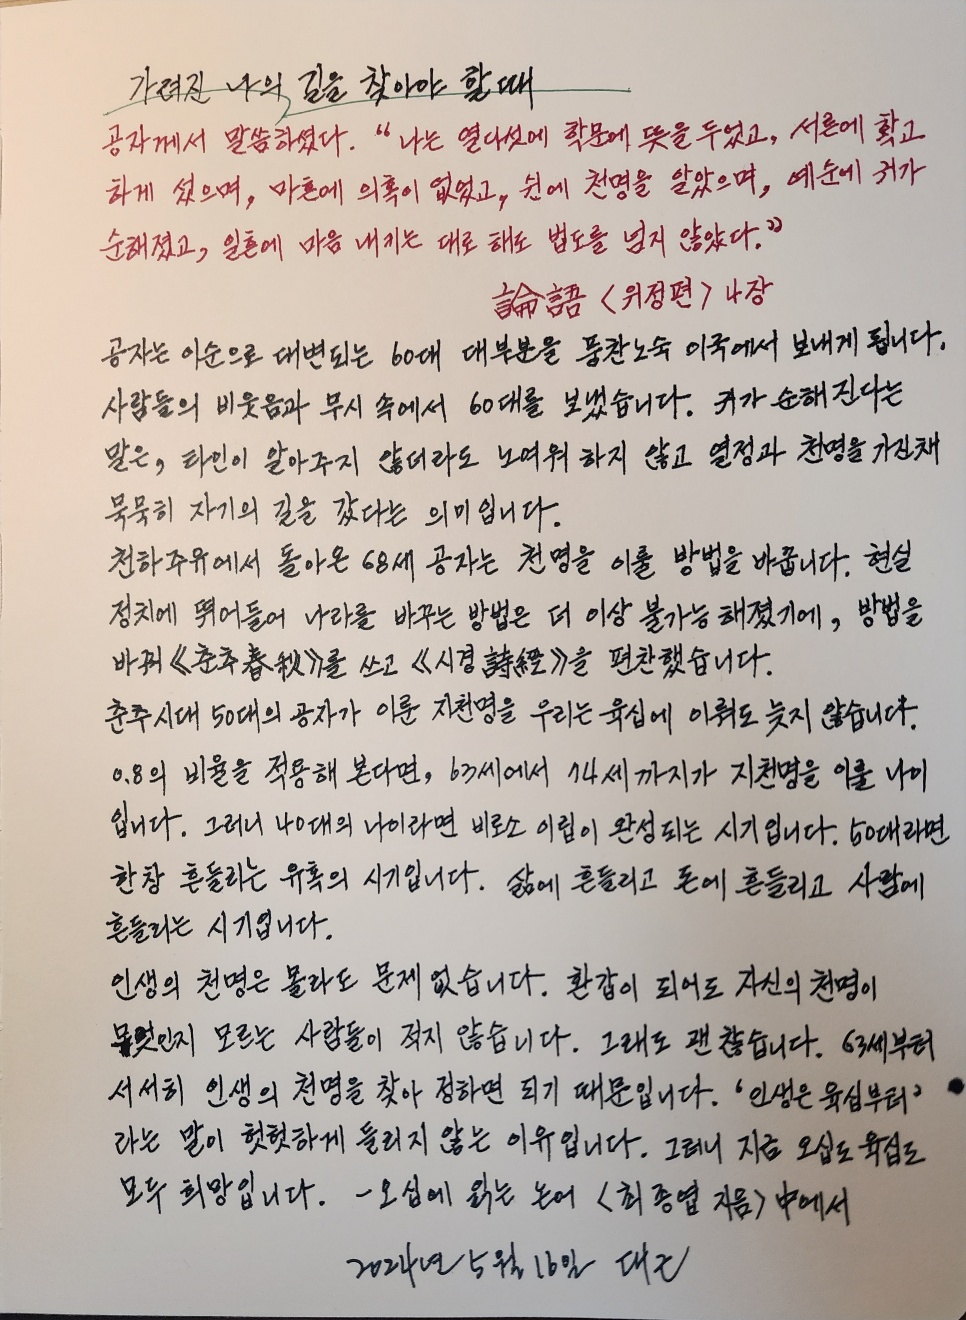 가려진 나의 길을 찾아야 할 때
공자께서 말씀하셨다. “나는 열다섯에 학문에 뜻을 두었고, 서른에 확고
하게 섰으며, 마흔에 의혹이 없었고, 쉰에 천명을 알았으며, 예순에 귀가
순해졌고, 일흔에 마음 내키는 대로 해도 법도를 넘지 않았다.”
論語 〈위정편〉 4장
공자는 이순으로 대변되는 60대 대부분을 풍찬노숙 이국에서 보내게 됩니다.
사람들의 비웃음과 무시 속에서 60대를 보냈습니다. 귀가 순해진다는
말은, 타인이 알아주지 않더라도 노여워 하지 않고 열정과 천명을 가진채
묵묵히 자기의 길을 갔다는 의미입니다.
천하주유에서 돌아온 68세 공자는 천명을 이룰 방법을 바꿉니다. 현실
정치에 뛰어들어 나라를 바꾸는 방법은 더 이상 불가능해졌기에, 방법을
바꿔 《춘추春秋》를 쓰고 《시경詩經》을 편찬했습니다.
춘추시대 50대의 공자가 이룬 지천명을 우리는 육십에 이뤄도 늦지 않습니다.
0.8의 비율을 적용해 본다면, 63세에서 74세까지가 지천명을 이룰 나이
입니다. 그러니 40대의 나이라면 비로소 이립이 완성되는 시기입니다. 50대라면
한창 흔들리는 유혹의 시기입니다. 삶에 흔들리고 돈에 흔들리고 사람에
흔들리는 시기입니다.
인생의 천명은 몰라도 문제 없습니다. 환갑이 되어도 자신의 천명이
무엇인지 모르는 사람들이 적지 않습니다. 그래도 괜찮습니다. 63세부터
서서히 인생의 천명을 찾아 정하면 되기 때문입니다. ‘인생은 육십부터’
라는 말이 헛헛하게 들리지 않는 이유입니다. 그러니 지금 오십도 육십도
모두 희망입니다. -오십에 읽는 논어 〈최종엽 지음〉 中에서
2024년 5월 16일